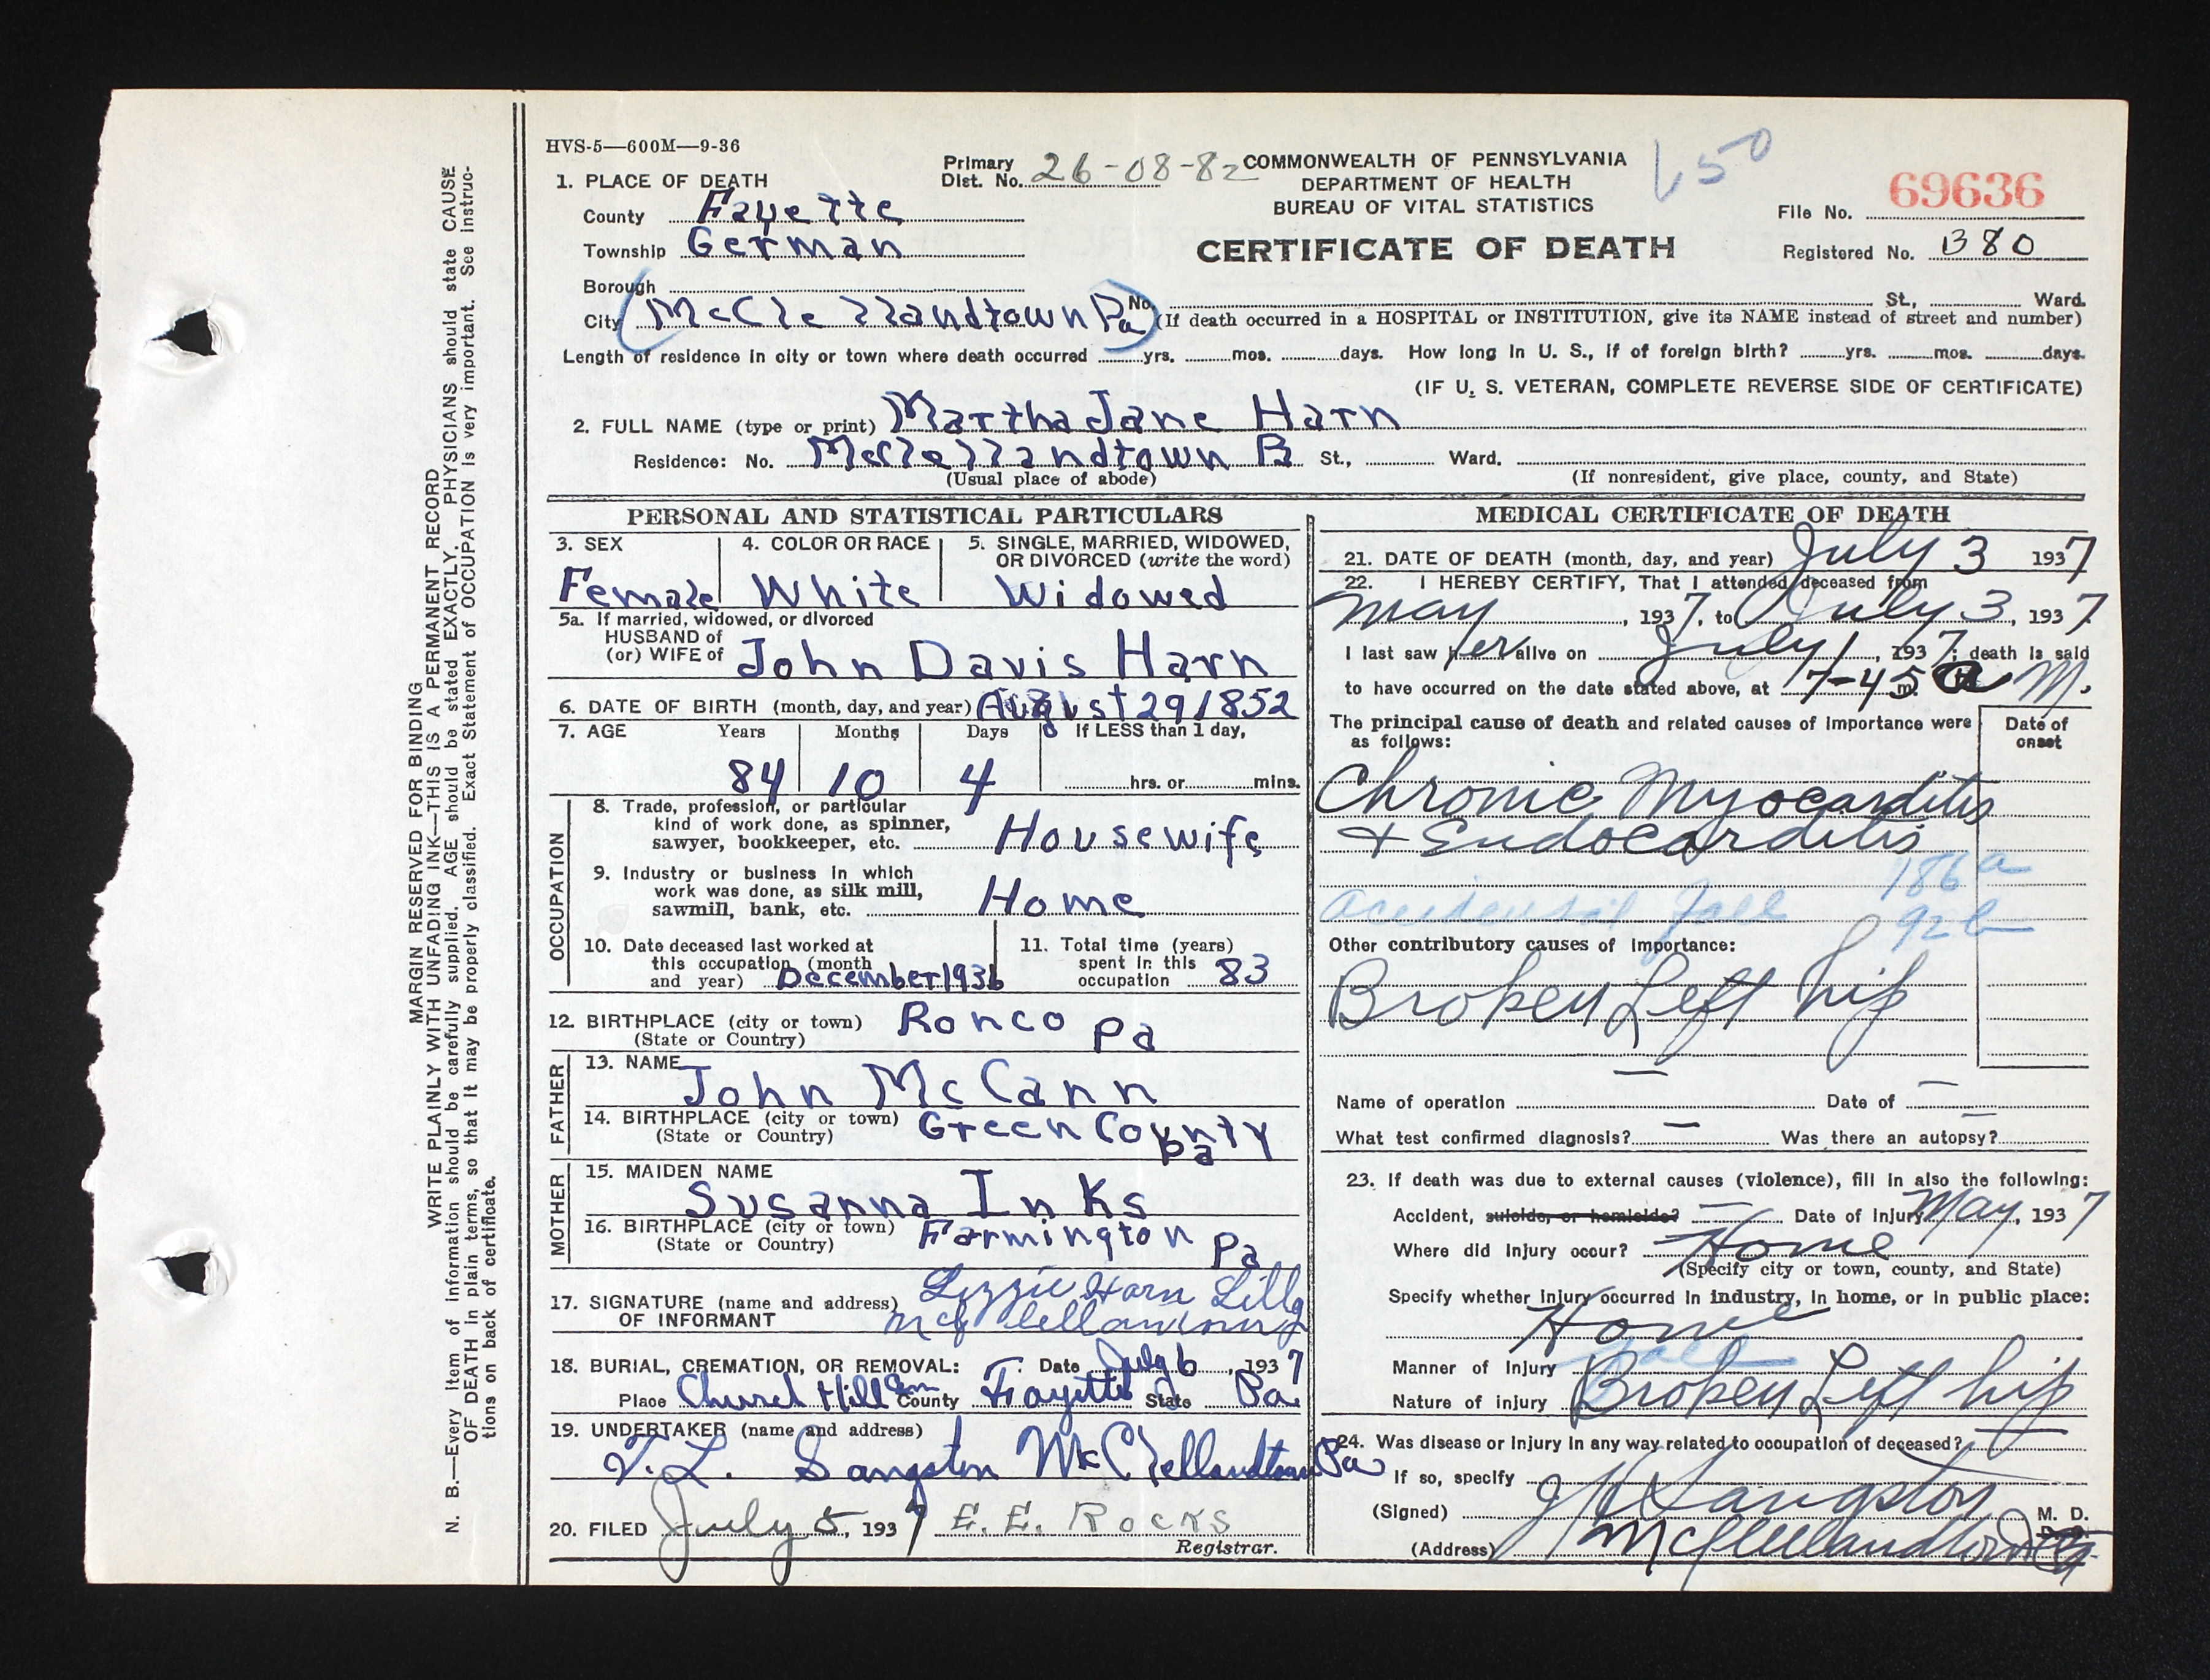 HVS-5—600M—9-36
Primary Dist. No. 26-08-82
COMMONWEALTH OF PENNSYLVANIA
DEPARTMENT OF HEALTH
BUREAU OF VITAL STATISTICS
CERTIFICATE OF DEATH
File No. 69636
Registered No. 1380
1. PLACE OF DEATH
County Fayette
Township German
Borough
City McClellandtown Pa No. St., Ward.
(If death occurred in a HOSPITAL or INSTITUTION, give its NAME instead of street and number)
Length of residence in city or town where death occurred yrs. mos. days. How long in U. S., if of foreign birth? yrs. mos. days.
(IF U. S. VETERAN, COMPLETE REVERSE SIDE OF CERTIFICATE)
2. FULL NAME (type or print) Martha Jane Harn
Residence: No. McClellandtown Pa St., Ward.
(Usual place of abode) (If nonresident, give place, county, and State)
PERSONAL AND STATISTICAL PARTICULARS
3. SEX Female
4. COLOR OR RACE White
5. SINGLE, MARRIED, WIDOWED, OR DIVORCED (write the word) Widowed
5a. If married, widowed, or divorced
HUSBAND of
(or) WIFE of John Davis Harn
6. DATE OF BIRTH (month, day, and year) August 29 1852
7. AGE Years Months Days If LESS than 1 day,
84 10 4 hrs. or mins.
OCCUPATION
8. Trade, profession, or particular
kind of work done, as spinner,
sawyer, bookkeeper, etc. Housewife
9. Industry or business in which
work was done, as silk mill,
sawmill, bank, etc. Home
10. Date deceased last worked at
this occupation (month
and year) December 1936
11. Total time (years)
spent in this
occupation 83
12. BIRTHPLACE (city or town) Ronco Pa
(State or Country)
FATHER
13. NAME John McCann
14. BIRTHPLACE (city or town) Green County
(State or Country) Pa
MOTHER
15. MAIDEN NAME Susanna Inks
16. BIRTHPLACE (city or town) Farmington Pa
(State or Country)
17. SIGNATURE (name and address) Lizzie Harn Lilly
OF INFORMANT
18. BURIAL, CREMATION, OR REMOVAL: Date July 6, 1937
Place Church Hill Cem County Fayette State Pa.
19. UNDERTAKER (name and address)
T. L. Sangston McClellandtown Pa
20. FILED July 5, 1937 E. E. Rocks
Registrar.
MEDICAL CERTIFICATE OF DEATH
21. DATE OF DEATH (month, day, and year) July 3 1937
22. I HEREBY CERTIFY, That I attended deceased from
May, 1937, to July 3, 1937
I last saw her alive on July 1, 1937; death is said
to have occurred on the date stated above, at 7-45 m. a M.
The principal cause of death and related causes of importance were
as follows:
Date of onset
Chronic Myocarditis
+ Endocarditis
186a
accidental fall 92b
Other contributory causes of importance:
Broken Left hip
Name of operation — Date of —
What test confirmed diagnosis? — Was there an autopsy? —
23. If death was due to external causes (violence), fill in also the following:
Accident, suicide, or homicide? — Date of injury May, 1937
Where did injury occur? Home
(Specify city or town, county, and State)
Specify whether injury occurred in industry, in home, or in public place:
Home
Manner of injury fall
Nature of injury Broken Left hip
24. Was disease or injury in any way related to occupation of deceased? —
If so, specify
(Signed) Sangston M. D.
D. O.
(Address) McClellandtown Pa
MARGIN RESERVED FOR BINDING
WRITE PLAINLY WITH UNFADING INK—THIS IS A PERMANENT RECORD
N. B.—Every item of information should be carefully supplied. AGE should be stated EXACTLY. PHYSICIANS should state CAUSE
OF DEATH in plain terms, so that it may be properly classified. Exact Statement of OCCUPATION is very important. See instruc-
tions on back of certificate.